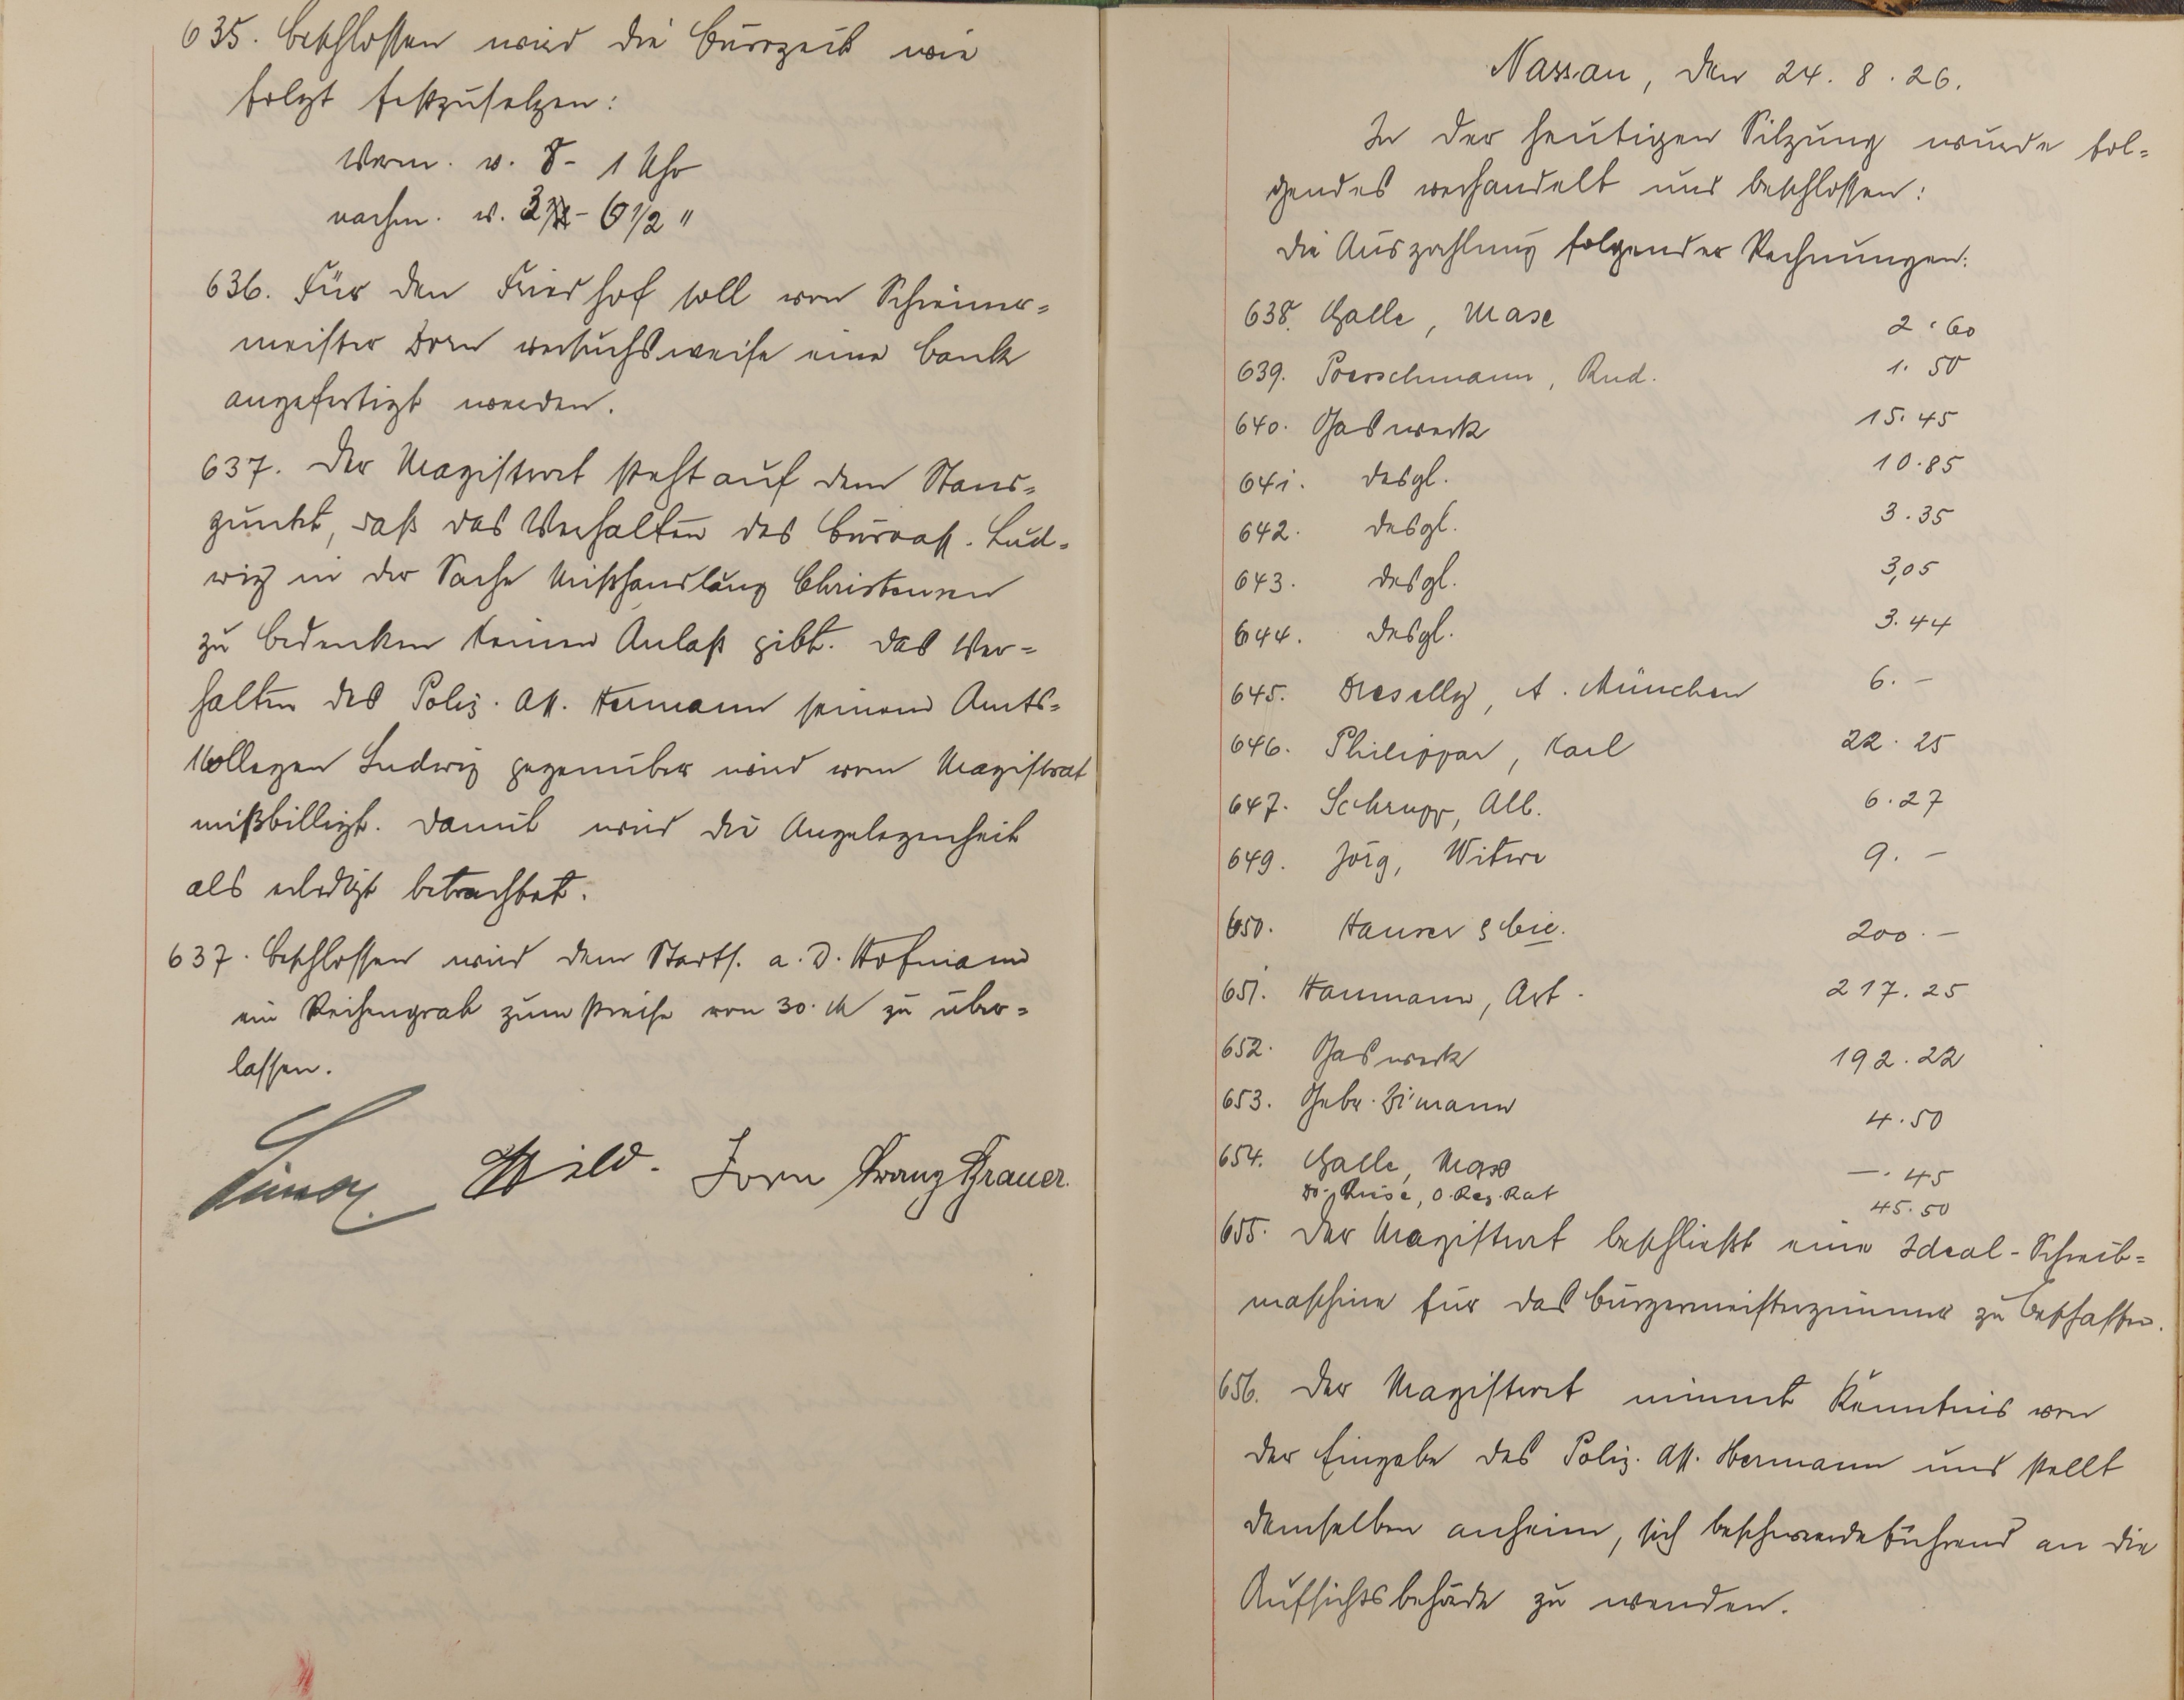 635. Beschlossen wird die Bürozeit wie
folgt festzusetzen:
Vorm. v. 8 - 1 Uhr
nachm. v. 3 - 6 1/2 "
636. Für den Friedhof soll von Schreiner=
meister Dorn versuchsweise eine Bank
angefertigt werden.
637. Der Magistrat steht auf dem Stand=
punkt, daß das Verhalten des Büroass. Lud=
wig in der Sache Mißhandlung Christensen
zu Bedenken keinen Anlaß gibt. Das Ver=
halten des Poliz. Ass. Hermann seinem Amts=
kollegen Ludwig gegenüber wird vom Magistrat
mißbilligt. Damit wird die Angelegenheit
als erledigt betrachtet.
637. Beschlossen wird dem a. D. Hofmann
ein Reihengrab zum Preise von 30. M zu über=
lassen.
Wild. Dorn Franz Grauer.
Nassau, den 24. 8. 26.
In der heutigen Sitzung wurde fol=
gendes verhandelt und beschlossen:
Die Auszahlung folgender Rechnungen:
638. Galle, Max 2.60
639. Poerschmann, Rud. 1.50
640. Gaswerk 15.45
641. desgl. 10.85
642. desgl. 3.35
643. desgl. 3,05
644. desgl. 3.44
645. Dreselly, A. München 6.-
646. Philippar, Karl 22.25
647. Schrupp, Alb. 6.27
649. Jörg, Witwe 9.-
650. Hauser & Cie. 200.-
651. Haumann, Art. 217.25
652. Gaswerk 192.22
653. Gebr. 4.50
654. Galle, Max -.45
O. Reg. Rat 45.50
655. Der Magistrat beschließt eine Ideal-Schreib=
maschine für das Bürgermeisterzimmer zu beschaffen.
656. Der Magistrat nimmt Kenntnis von
der Eingabe des Poliz. Ass. Hermann und stellt
demselben anheim, sich beschwerdeführend an die
Aufsichtsbehörde zu wenden.